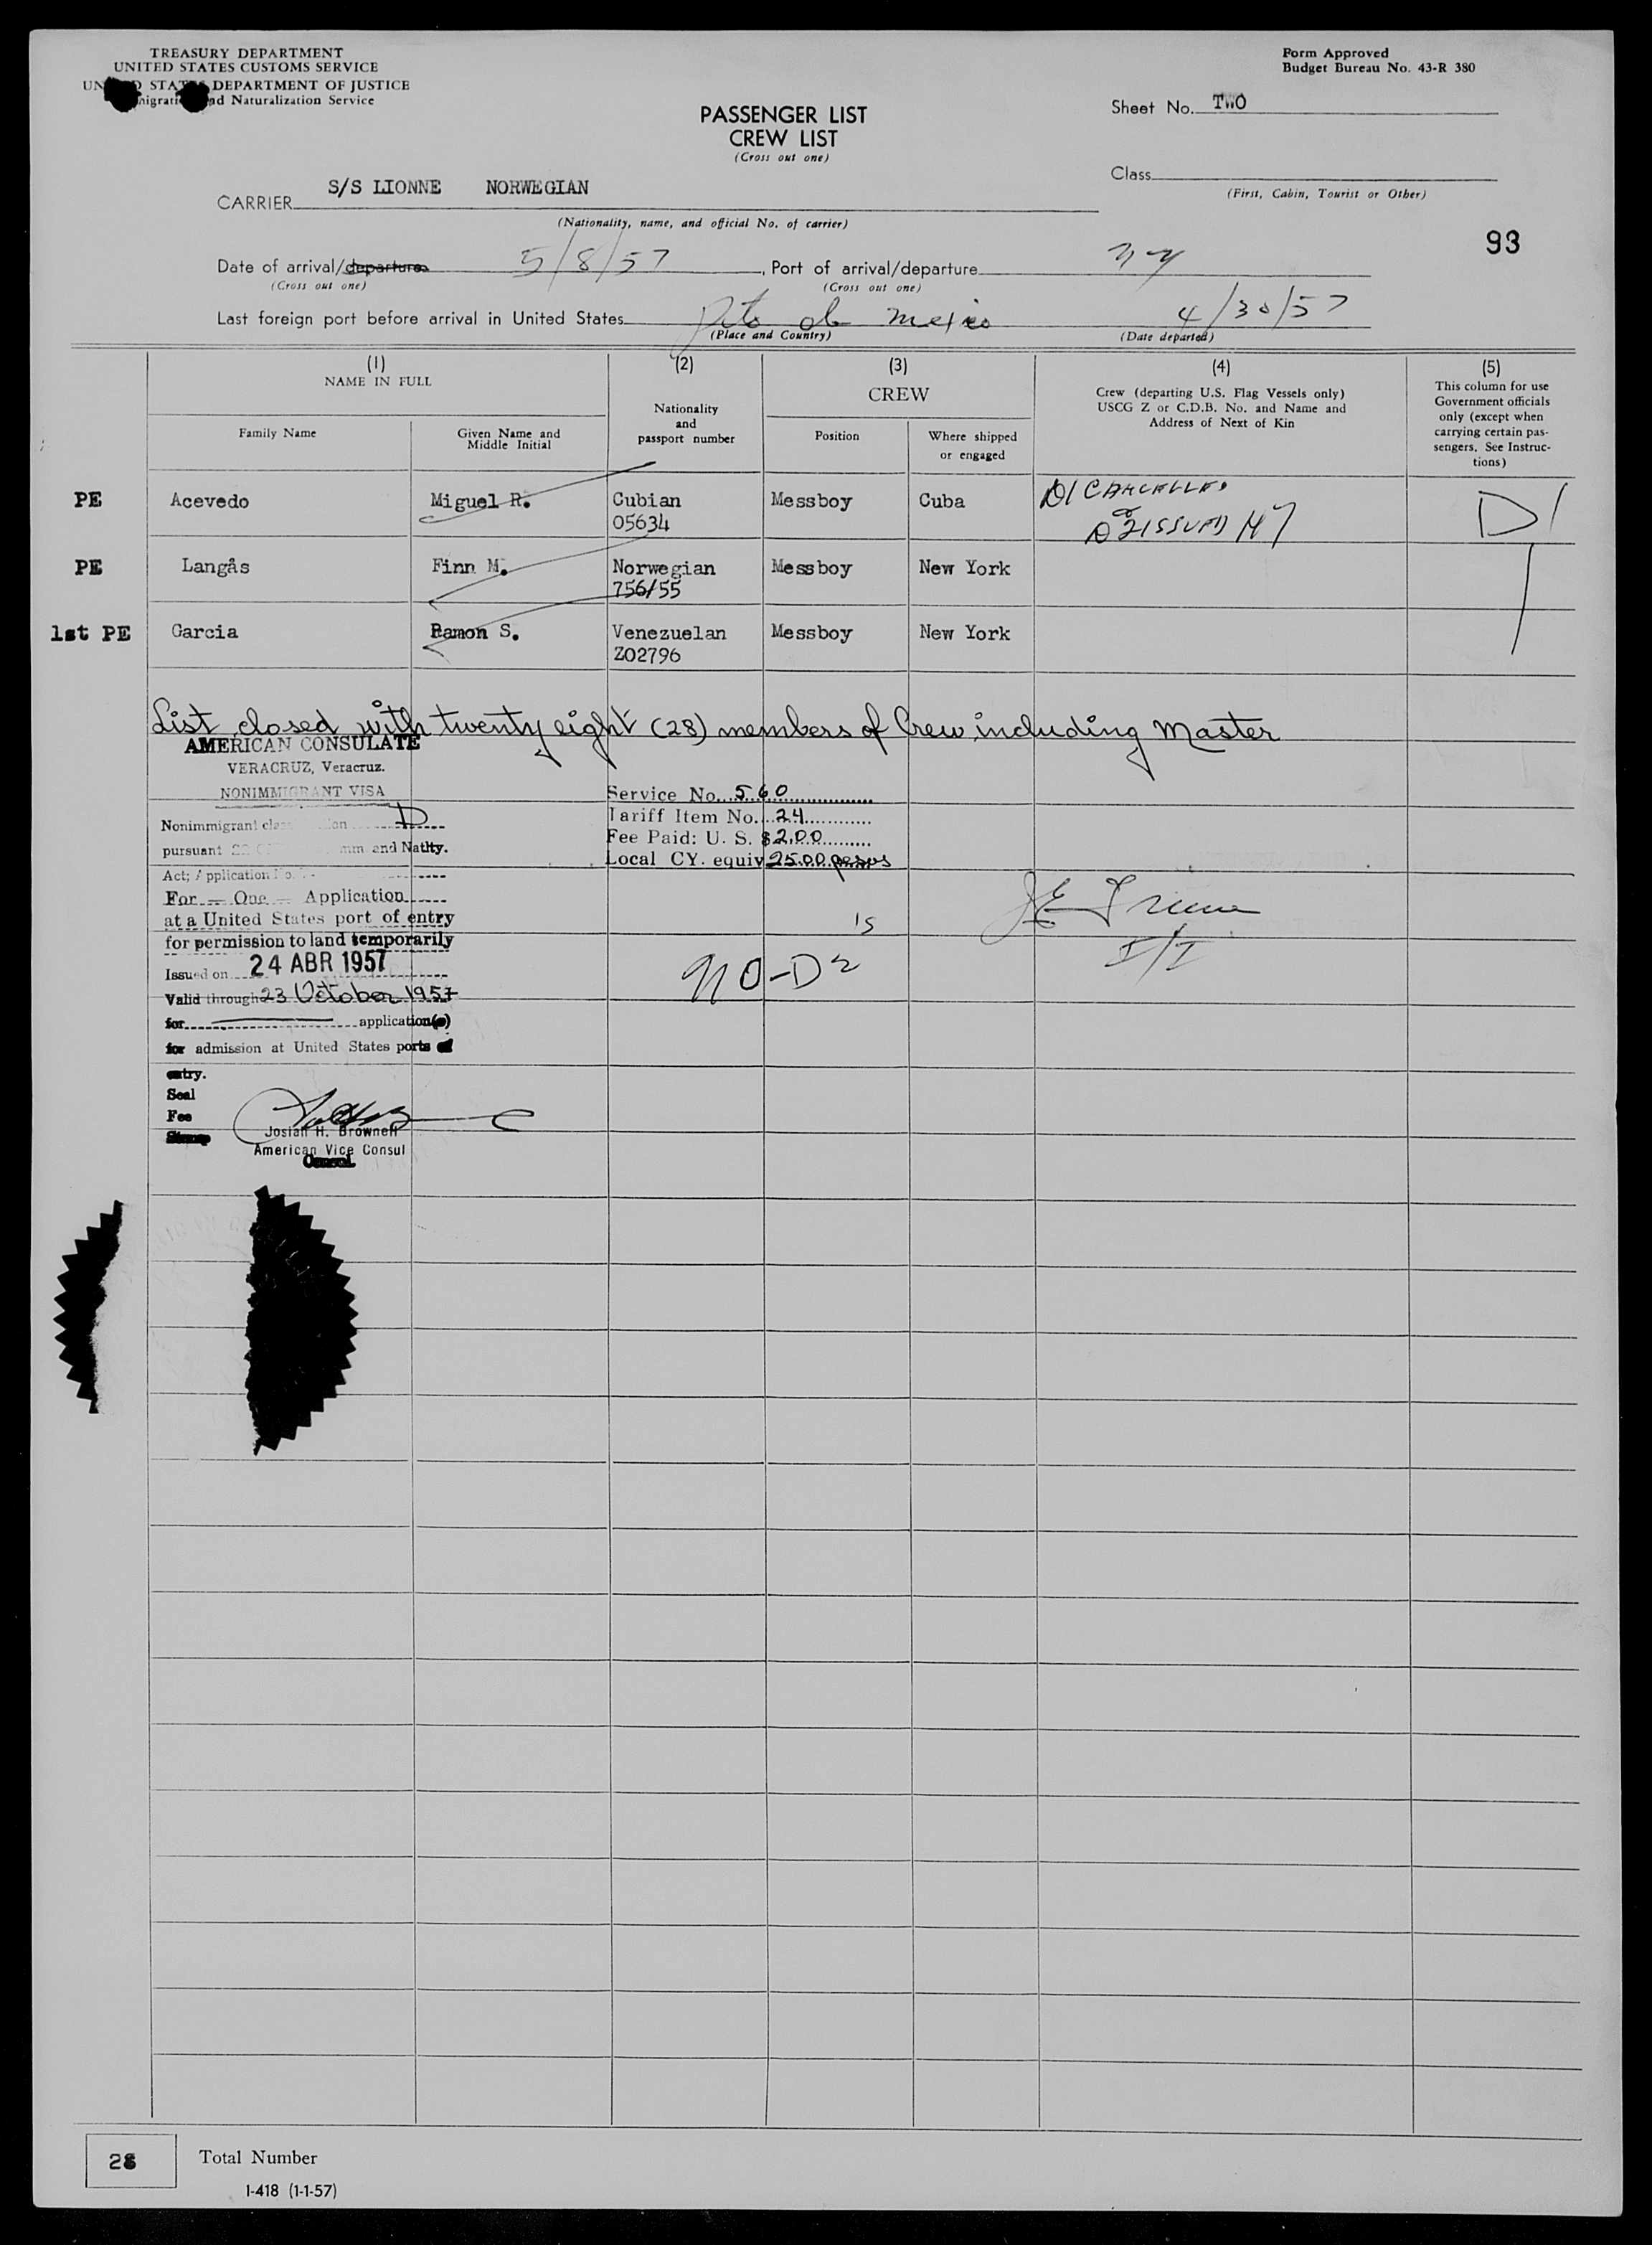 TREASURY DEPARTMENT
UNITED STATES CUSTOMS SERVICE
STATES DEPARTMENT OF JUSTICE
and Naturalization Service
Form Approved
Budget Bureau No. 43-R 380
PASSENGER LIST
CREW LIST
(Cross out one)
Sheet No. TWO
Class
(First, Cabin, Tourist or Other)
CARRIER S/S LIONNE NORWEGIAN
(Nationality, name, and official No. of carrier)
93
Date of arrival/departure 5/8/57, Port of arrival/departure NY
(Cross out one) (Cross out one)
Last foreign port before arrival in United States Pto Mexico 4/30/57
(Place and Country) (Date departed)
(1) (2) (3) (4) (5)
NAME IN FULL
Family Name
Given Name and
Middle Initial
Nationality
and
passport number
CREW
Position
Where shipped
or engaged
Crew (departing U.S. Flag Vessels only)
USCG Z or C.D.B. No. and Name and
Address of Next of Kin
This column for use
Government officials
only (except when
carrying certain pas-
sengers. See Instruc-
tions)
PE Acevedo Miguel R. Cubian Messboy Cuba D1 CANCELLED D1
05634 D2 ISSUED NY
PE Langås Finn M. Norwegian Messboy New York
756/55
1st PE Garcia Ramon S. Venezuelan Messboy New York
Z02796
List closed with twenty eight (28) members of Crew including Master
AMERICAN CONSULATE
VERACRUZ, Veracruz.
NONIMMIGRANT VISA
Nonimmigrant D
pursuant and Natlty.
Act; Application No.
For — One — Application
at a United States port of entry
for permission to land temporarily
Issued on 24 ABR 1957
Valid through 23 October 1957
for application(s)
for admission at United States ports of
entry.
Seal
Fee
Stamp
Josiah H. Brownell
American Vice Consul
Service No. 560
Tariff Item No. 24
Fee Paid: U. S. $2.00
Local CY. equiv 25.00 pesos
15
910-D2
I/I
28 Total Number
I-418 (1-1-57)